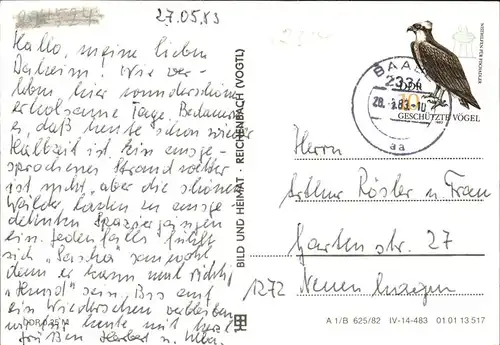 27.05.83
Hallo, meine lieben
Daheim! Wir ver-
leben hier wunderschöne
erholsame Tage. Bedauern
es, daß heute schon wieder
Halbzeit ist. Ein ausge-
sprochenes Strandwetter
ist nicht, aber die schönen
Wälder, laden zu ausge
dehnten Spaziergängen
ein. Jedenfalls fühlt
sich "Sascha" sauwohl
denn er kann mal richtig
"Hund" sein. Bis auf
ein Wiedersehen verbleiben
wir für heute mit herzl
Grüßen
DDR 0,25 M
BILD UND HEIMAT · REICHENBACH (VOGTL)
BAABE
2334
28.-5.83-10
aa
DDR
10
GESCHÜTZTE VÖGEL
Herrn
Arthur Rösler u. Frau
Gartenstr. 27
1272 Neuenhagen
A 1/B 625/82 IV-14-483 01 01 13 517